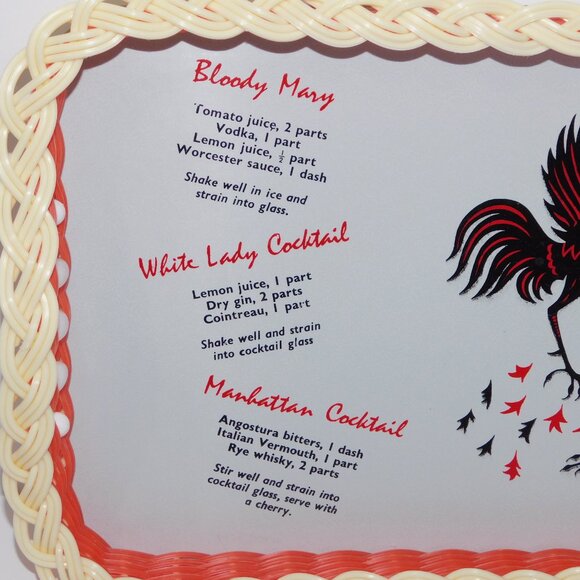 Bloody Mary
Tomato juice, 2 parts
Vodka, 1 part
Lemon juice, ½ part
Worcester sauce, 1 dash
Shake well in ice and
strain into glass.
White Lady Cocktail
Lemon juice, 1 part
Dry gin, 2 parts
Cointreau, 1 part
Shake well and strain
into cocktail glass
Manhattan Cocktail
Angostura bitters, 1 dash
Italian Vermouth, 1 part
Rye whisky, 2 parts
Stir well and strain into
cocktail glass, serve with
a cherry.